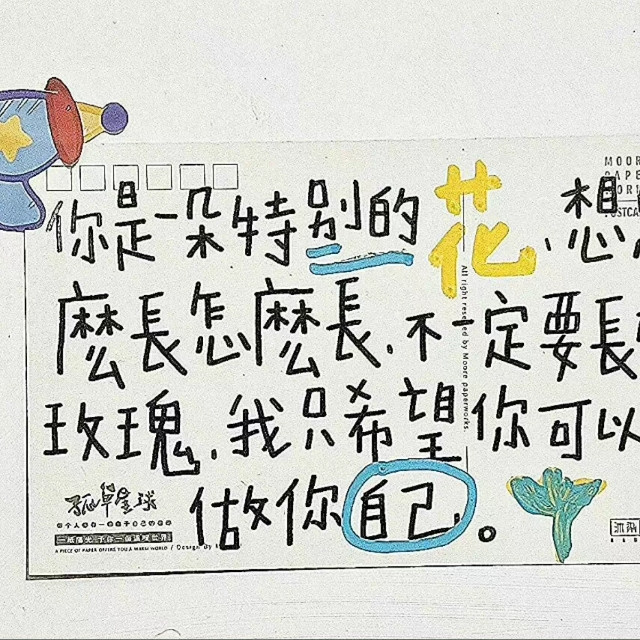 你是一朵特別的花,想
麼長怎麼長,不一定要長
玫瑰,我只希望你可以
做你自己。
孤單星球
一紙陽光 予你一個溫暖世界
A PIECE OF PAPER OFFERS YOU A WARM WORLD / Design By
All right reserved by Moore paperworks.
MOOR